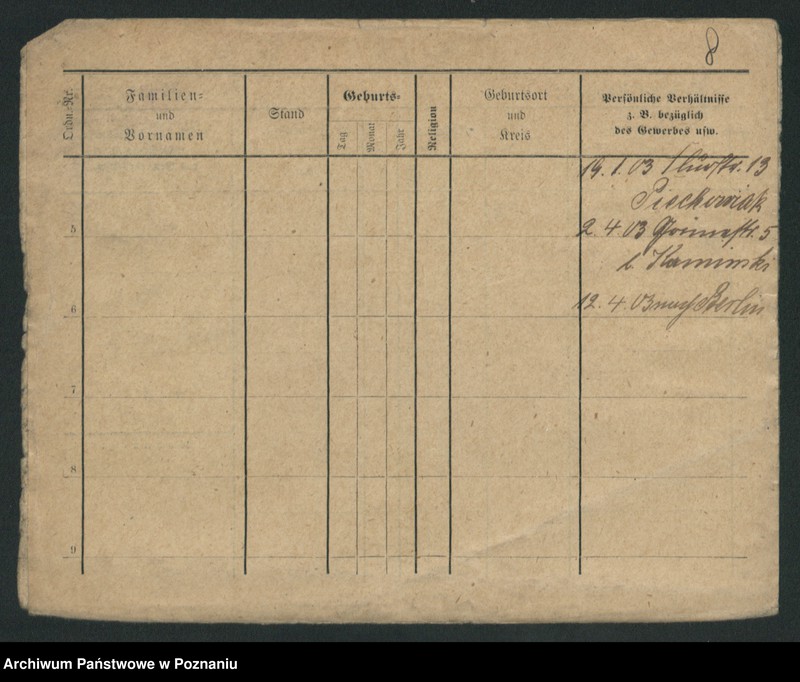 8
Ordn.-Nr.
Familien-
und
Vornamen
Stand
Geburts-
Tag
Monat
Jahr
Religion
Geburtsort
und
Kreis
Persönliche Verhältnisse
z. B. bezüglich
des Gewerbes usw.
19. 1. 03 13
Piechowiak
5
2. 4. 03 5
b. Kaminski
12. 4. 03 nach Berlin
6
7
8
9
Archiwum Państwowe w Poznaniu